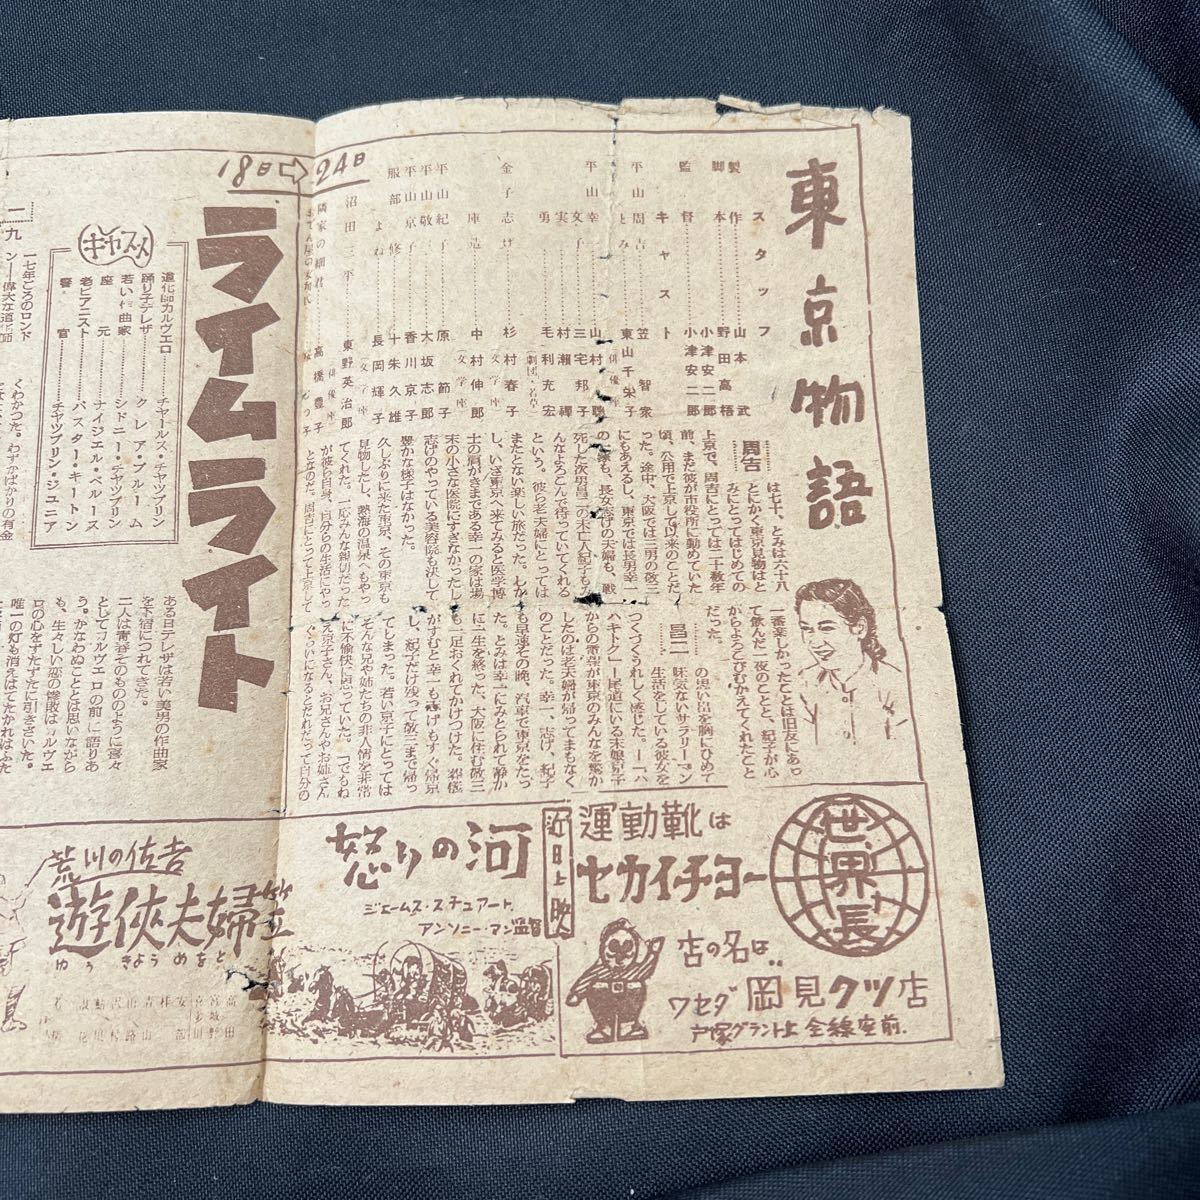 東京物語
スタッフ
製作 山本武
脚本 野田高梧
小津安二郎
監督 小津安二郎
キャスト
平山周吉 笠智衆
とみ 東山千栄子
(俳優座)
平山幸一 山村聰
文子 三宅邦子
実 村瀬禪
(劇団・若草)
勇 毛利充宏
金子志げ 杉村春子
(文学座)
庫造 中村伸郎
(文学座)
平山紀子 原節子
平山敬三 大坂志郎
平山京子 香川京子
服部修 十朱久雄
よね 長岡輝子
(文学座)
沼田三平 東野英治郎
(俳優座)
隣家の細君 高橋豊子
周吉
は七十、とみは六十八
とにかく東京見物はと
みにとってはじめての
上京で、周吉にとっては二十数年
前、まだ彼が市役所に勤めていた
頃、公用で上京して以来のことだ
った。途中、大阪では三男の敬三
にもあえるし、東京では長男幸一
の一家も、長女志げの夫婦も、戦
死した次男昌二の未亡人紀子もみ
んなよろこんで待っていてくれる
という。彼ら老夫婦にとっては
またとない楽しい旅だった。しか
し、いざ東京へ来てみると医学博
士の肩がきまである幸一の家は場
末の小さな医院にすぎなかったし
志げのやっている美容院も決して
豊かな様子はなかった。
久しぶりに来た東京、その東京も
見物したし、熱海の温泉へもやっ
てくれた。一応みんな親切だった
が彼ら自身、自分らの生活にやっ
となのだ。周吉にとって上京して
一番楽しかったことは旧友にあっ
て飲んだ一夜のことと、紀子が心
からよろこびむかえてくれたこと
だった。
昌二
の思い出を胸にひめて
味気ないサラリーマン
生活をしている彼女を
つくづくうれしく感じた。―「ハ
ハキトク」―尾道にいる末娘京子
からの電報が東京のみんなを驚か
したのは老夫婦が帰ってまもなく
のことだった。幸一、志げ、紀子
も早速その晩、汽車で東京をたっ
た。とみは幸一にみとられて静か
に一生を終った。大阪に住む敬三
も一足おくれてかけつけた。葬儀
がすむと幸一も志げもすぐ帰京
し、紀子だけ残って敬三まで帰っ
てしまった。若い京子にとっては
そんな兄や姉たちの非人情を非常
に不愉快に思っていた。「でもね
え京子さん、お兄さんやお姉さん
ぐらいになるとだれだって自分の
18日⇨24日
ライムライト
キャスト
道化師カルヴェロ チャールス・チャップリン
踊り子テレザ クレア・ブルーム
若い作曲家 シドニー・チャップリン
座元 ナイジェル・ベルース
老ピアニスト バスター・キートン
警官 チャップリン・ジュニア
一九
一七年ごろのロンド
ン―偉大な道化師
くわかった。わずかばかりの有金
ある日テレザは若い美男の作曲家
を下宿につれてきた。
二人は青春そのもののように喜々
としてカルヴェロの前に語りあ
う。かなわぬこととは思いながら
も、生々しい恋の惨敗はカルヴェ
ロの心をずたずたに引きさいた。
唯一の灯も消えはてたかれはふた
世界長
運動靴は
セカイチョー
店の名は‥
ワセダ 岡見クツ店
戸塚グランド上 全線座前.
近日上映
怒りの河
ジェームス・スチュアート
アンソニー・マン監督
荒川の佐吉
遊侠夫婦笠
ゆうきようめをと